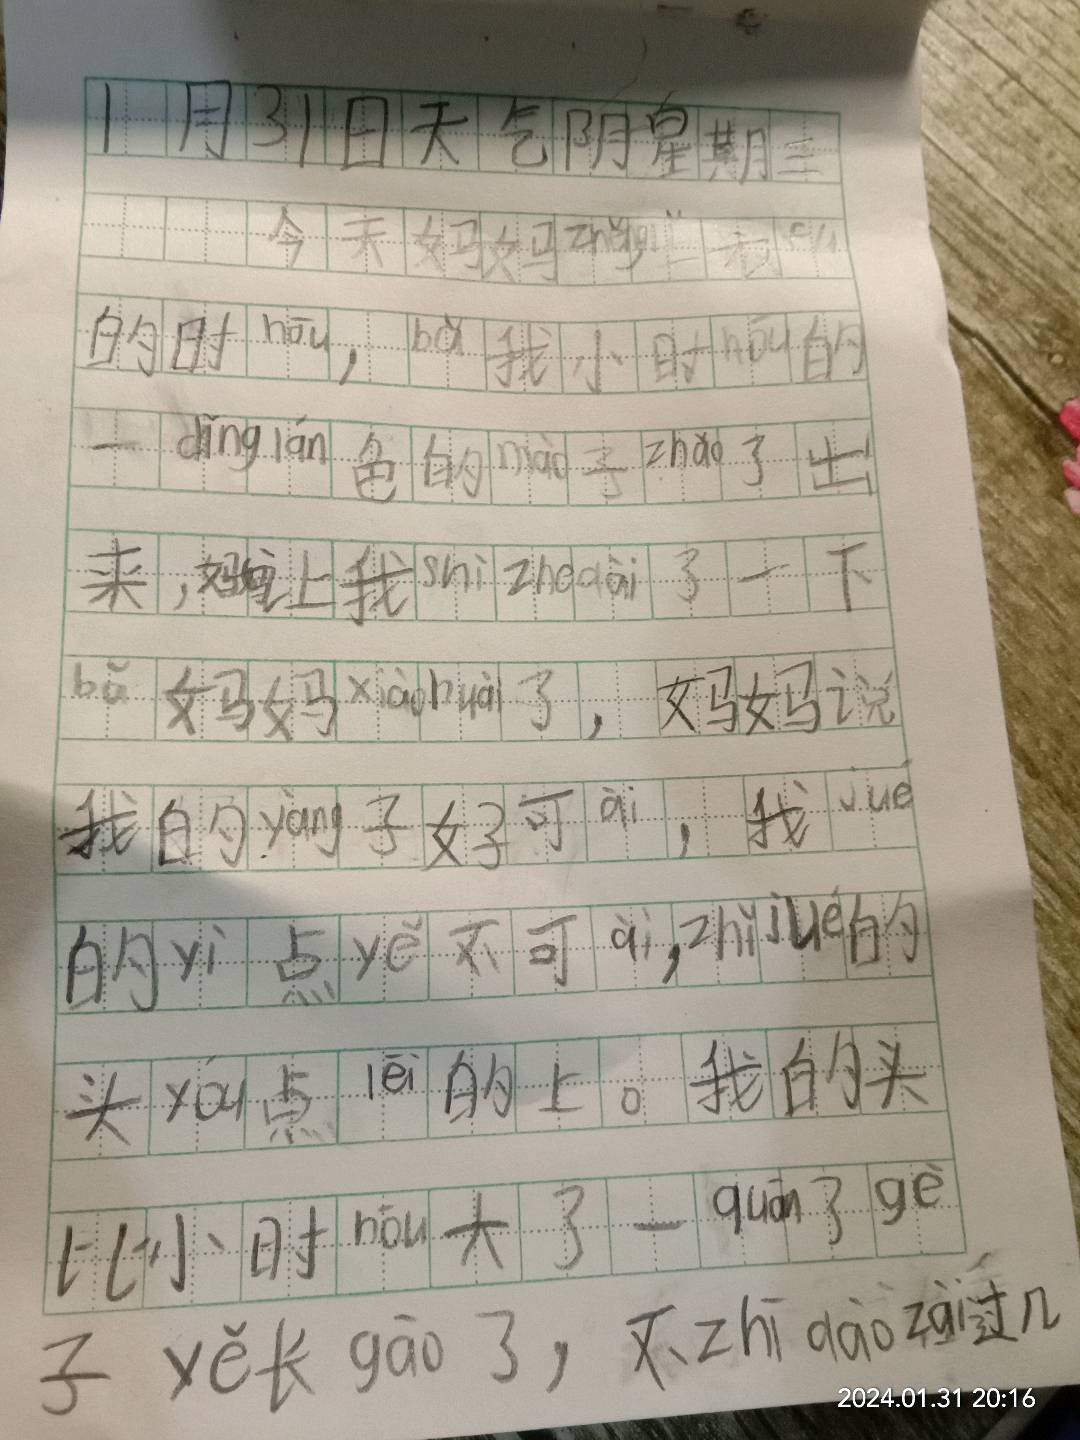 1月31日天气阴星期三
今天妈妈zhěng lǐ衣
的时hōu，bǎ我小时hōu的
一dǐng lán色的mào子zhǎo了出
来，妈妈让我shì zhe dài了一下
bǎ妈妈xiào huài了，妈妈说
我的yàng子好可ài，我jué
的yì点yě不可ài，zhǐ jué的
头yǒu点lēi的上。我的头
比小时hōu大了一quān了gè
子yě长gāo了，不zhī dào zài过几
2024.01.31 20:16